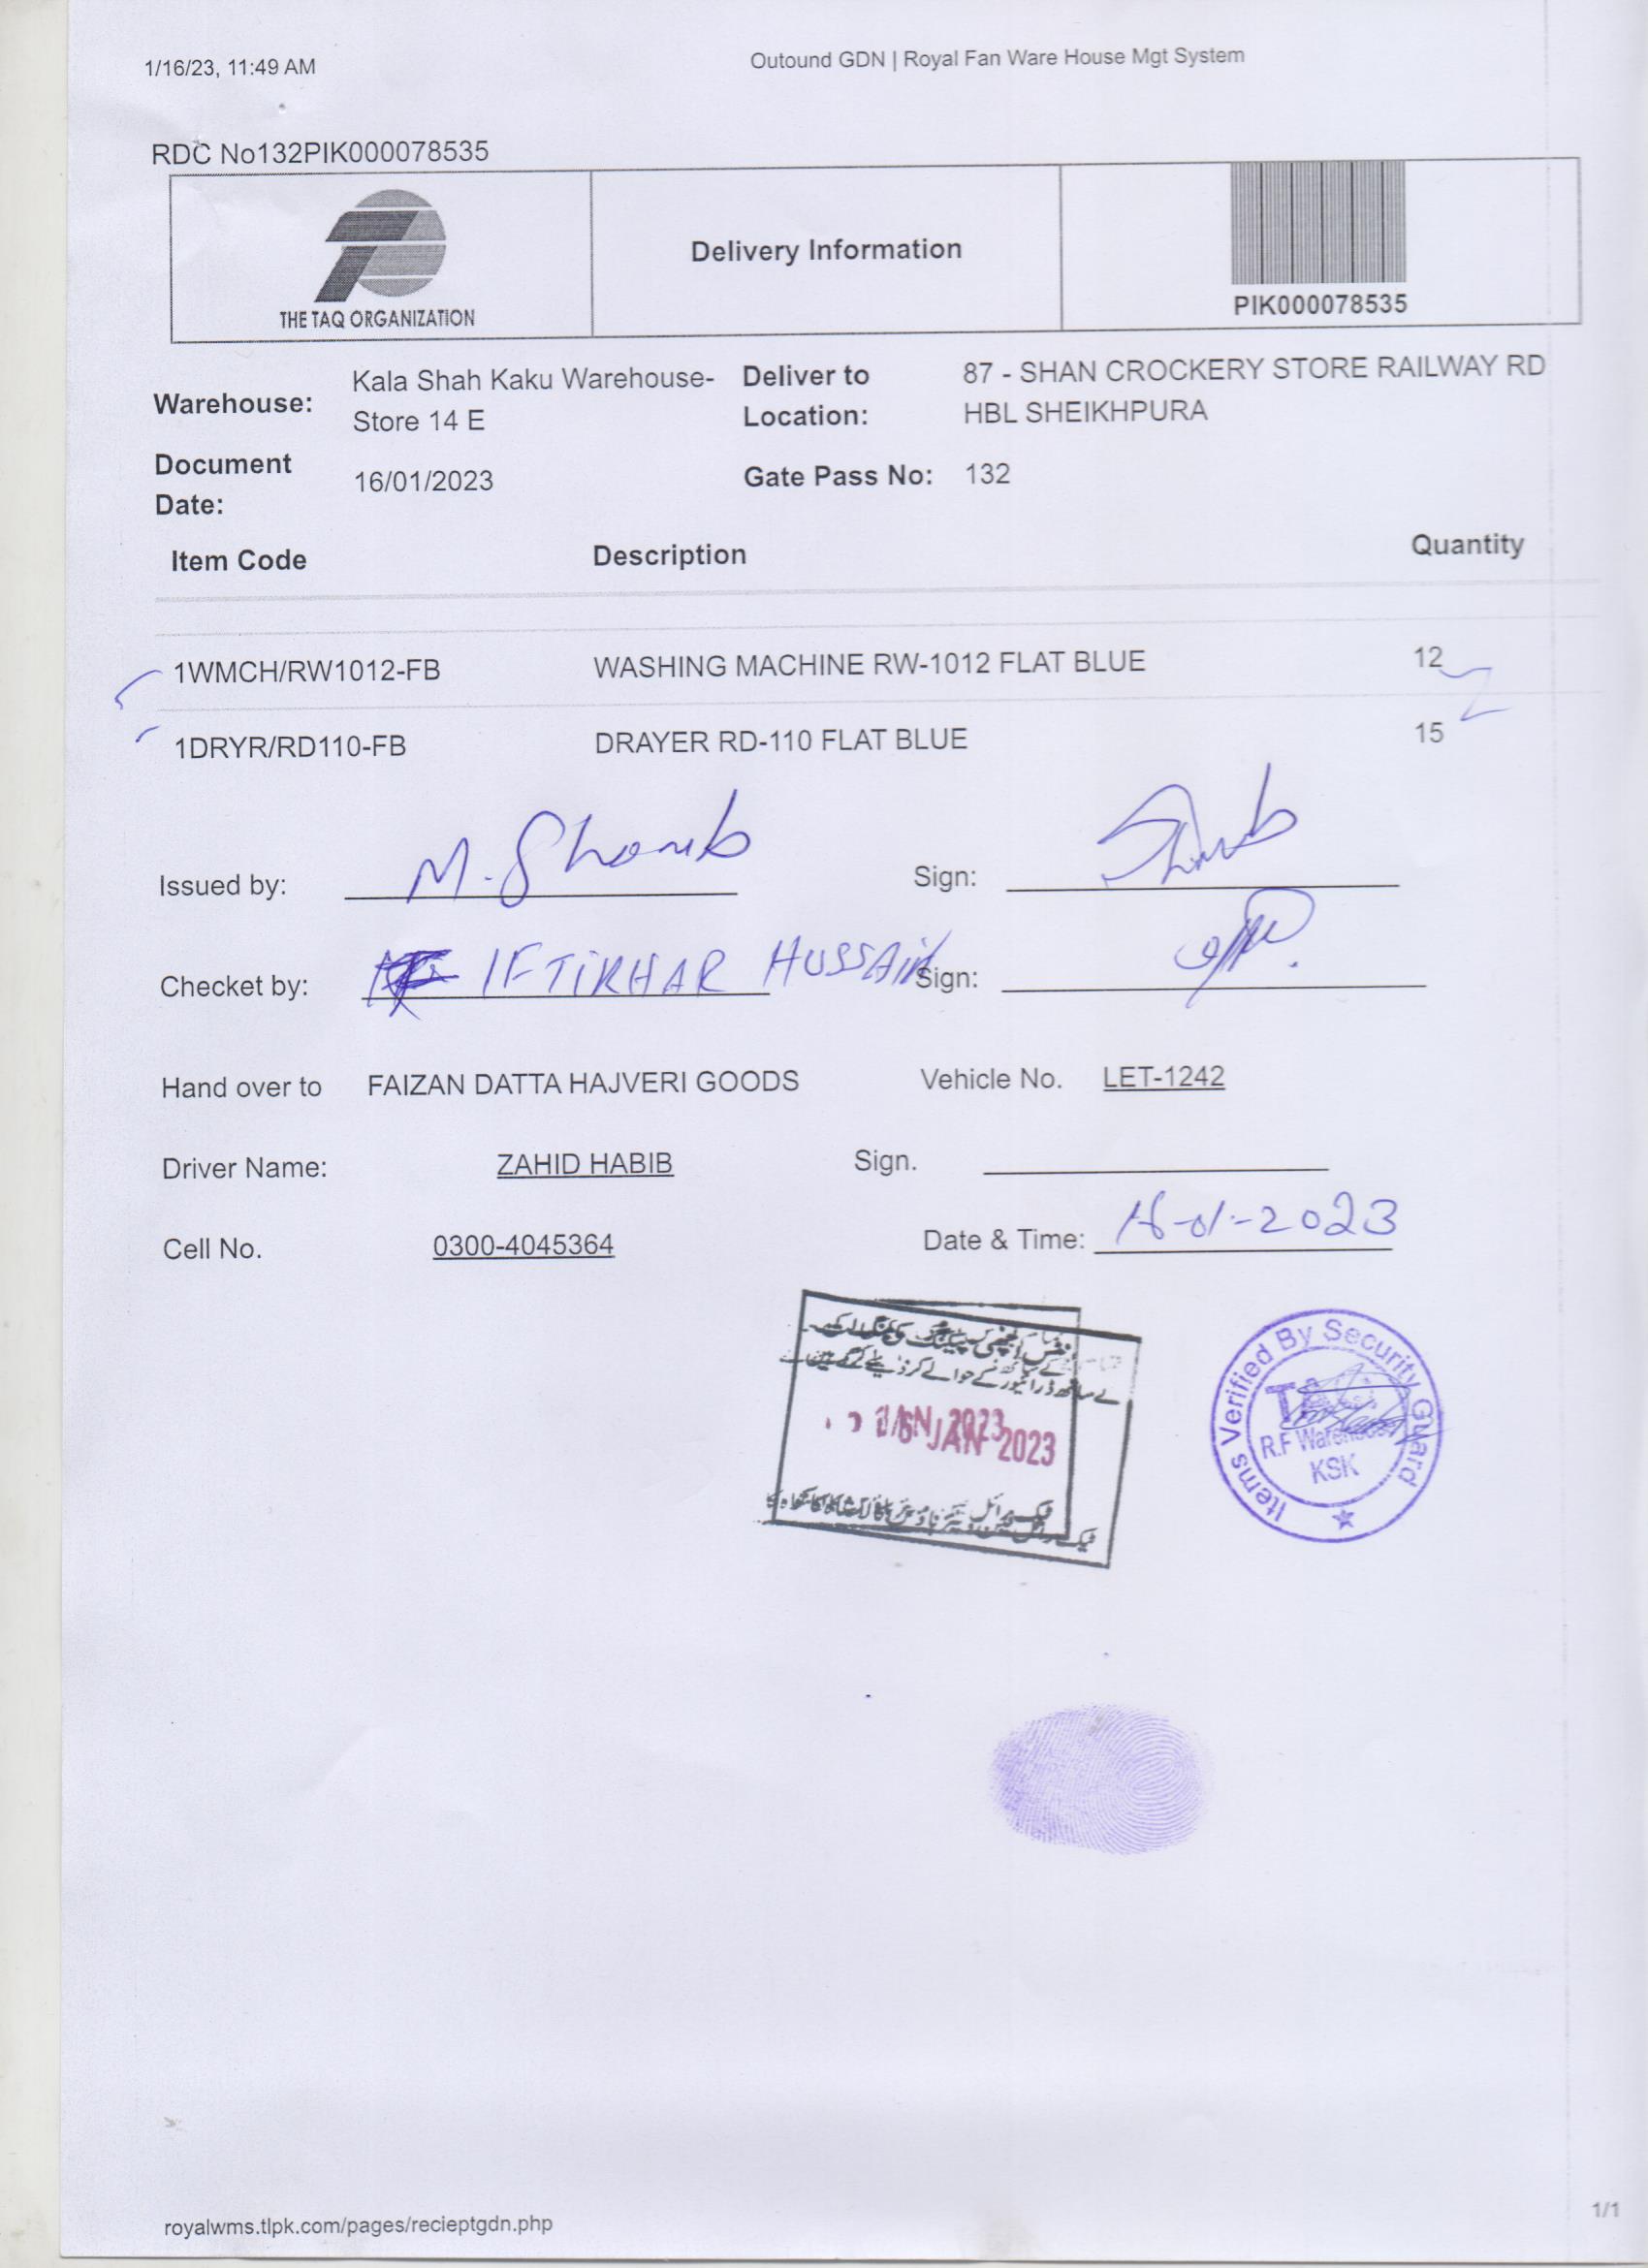 1/16/23, 11:49 AM
Outound GDN | Royal Fan Ware House Mgt System
RDC No132PIK000078535
THE TAQ ORGANIZATION
Delivery Information
PIK000078535
Warehouse: Kala Shah Kaku Warehouse-
Store 14 E
Deliver to
Location: 87 - SHAN CROCKERY STORE RAILWAY RD
HBL SHEIKHPURA
Document
Date: 16/01/2023
Gate Pass No: 132
Item Code Description Quantity
1WMCH/RW1012-FB WASHING MACHINE RW-1012 FLAT BLUE 12
1DRYR/RD110-FB DRAYER RD-110 FLAT BLUE 15
Issued by: M. Sign:
Checket by: IFTIKHAR HUSSAIN Sign:
Hand over to FAIZAN DATTA HAJVERI GOODS Vehicle No. LET-1242
Driver Name: ZAHID HABIB Sign.
Cell No. 0300-4045364 Date & Time: 16-01-2023
JAN 2023
Items Verified By Security Guard
R.F Warehouse
KSK
royalwms.tlpk.com/pages/recieptgdn.php
1/1